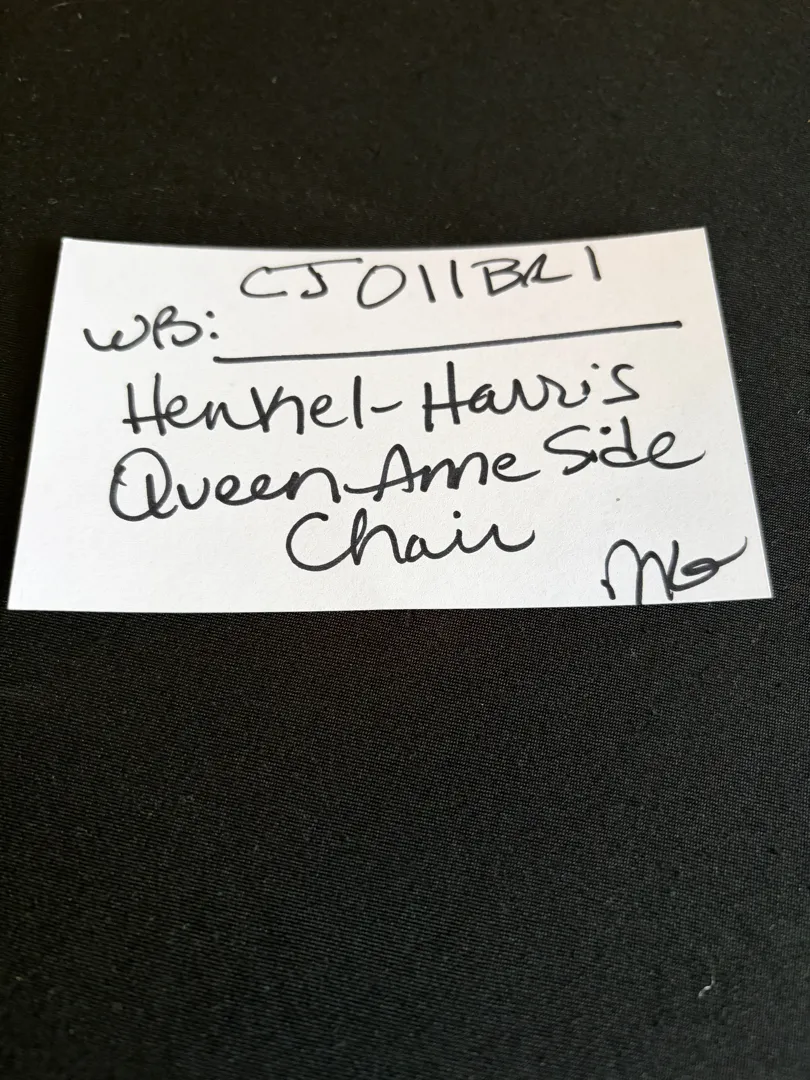 CJ011BR1
WB:
Henkel-Harris
Queen Anne Side
Chair